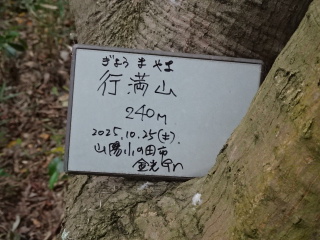 ぎょう ま やま
行満山
240M
2025.10.25(土).
山陽小の田市